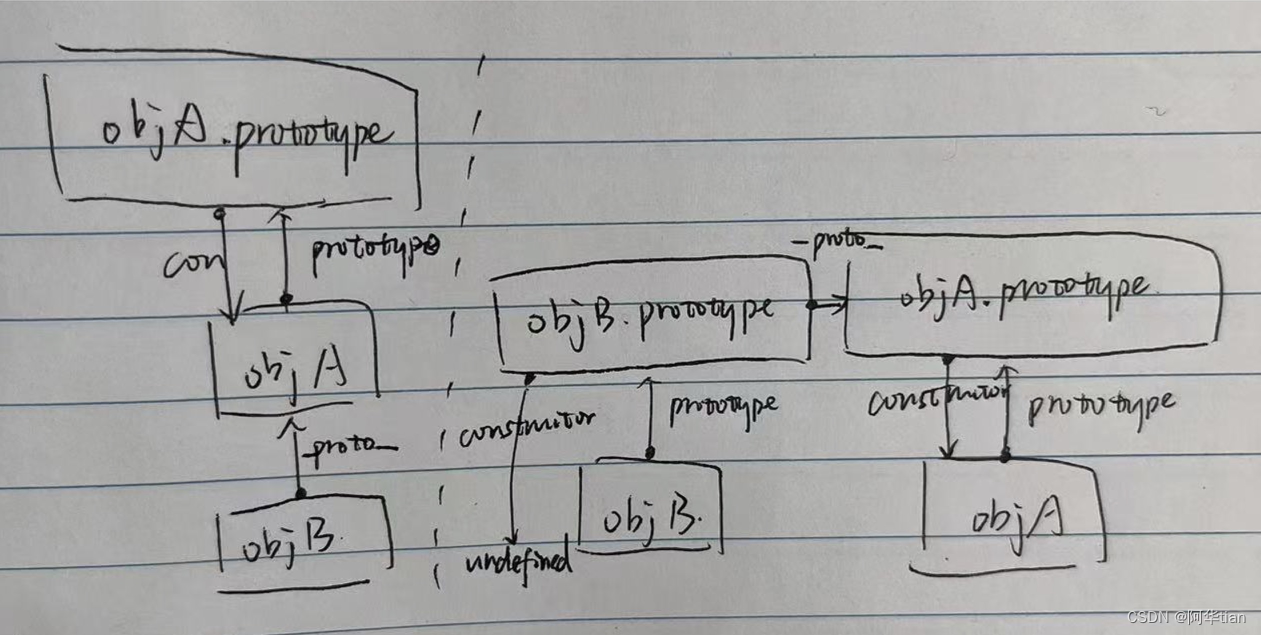 objA.prototype
con
prototype
objA
_proto_
objB.
objB.prototype
_proto_
objA.prototype.
construitor
prototype
undefined
objB.
construitor
prototype
objA
CSDN @阿华tian